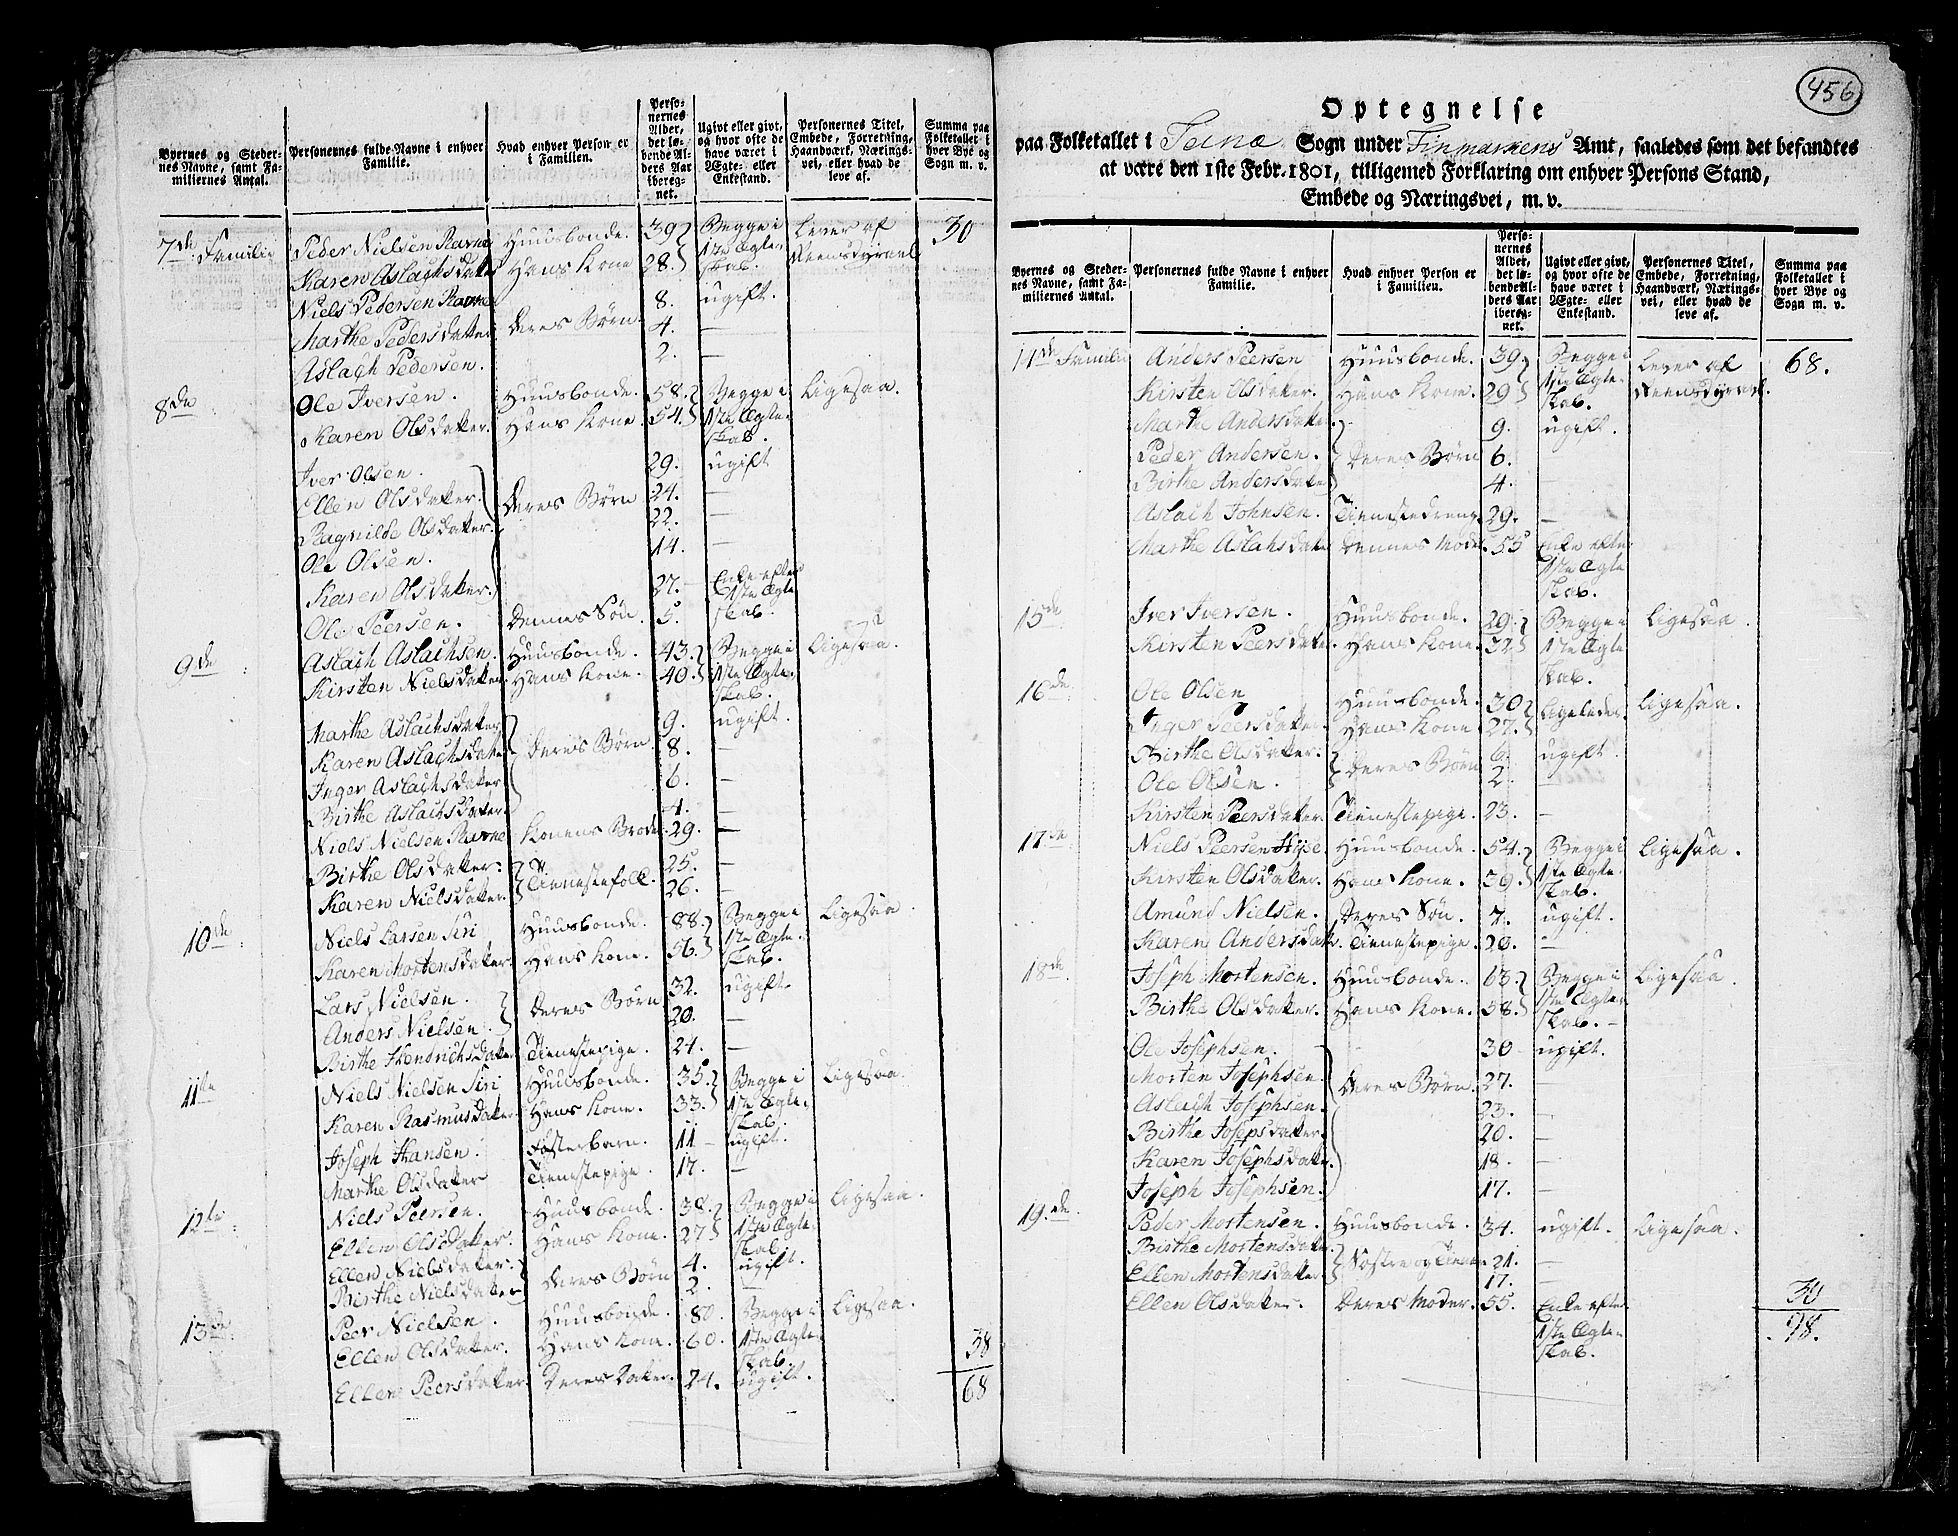 Byernes og Steder-
nes Navne, samt Fa-
miliernes Antal.
Personernes fulde Navne i enhver
Familie.
Hvad enhver Person er
i Familien.
Perso-
nernes
Alder,
det lø-
bende Al-
ders Aar
iberegnet.
Ugivt eller givt,
og hvor ofte de
have været i
Ægte- eller
Enkestand.
Personernes Titel,
Embede, Forretning,
Haandværk, Nærings-
vei, eller hvad de
leve af.
Summa paa
Folketallet i
hver Bye og
Sogn m. v.
30
7de Familie Peder Nielsen Ravna Huusbonde. 39 Begge i 1ste Ægteskab. Lever af Reensdyravl
Karen Aslachsdatter Hans Kone 28.
Niels Pedersen Ravna 8. ugift.
Marthe Pedersdatter Deres Børn 4. —
Aslach Pedersen. 2. —
8de Ole Iversen. Huusbonde. 58. Begge i 1ste Ægteskab. Ligesaa.
Karen Olsdatter. Hans Kone 54.
Iver Olsen. 29. ugift
Ellen Olsdatter. Deres Børn 24. —
Ragnilde Olsdatter. 22. —
Ole Olsen. 14. —
Karen Olsdatter. 27. Enke efter 1ste Ægteskab.
Ole Peersen. Dennes Søn. 5.
9de Aslach Aslachsen. Huusbonde. 43. Begge i 1ste Ægteskab. Ligesaa.
Kirsten Nielsdatter Hans Kone. 40.
Marthe Aslachsdatter 9. ugift.
Karen Aslachsdatter Deres Børn 8. —
Inger Aslachsdatter 6. —
Birthe Aslachsdatter. 4. —
Niels Nielsen Ravna Konens Broder 29. —
Birthe Olsdatter. Tienestefolk. 25. —
Karen Nielsdatter. 26. —
10de Niels Larsen Siri Huusbonde. 88. Begge i 1ste Ægteskab. Ligesaa
Karen Mortensdatter. Hans Kone. 56.
Lars Nielsen. Deres Børn 32. ugift.
Anders Nielsen. 20. —
Birthe Hendrichsdatter Tienestepige. 24. —
11te Niels Nielsen Siri Huusbonde. 35. Begge i 1ste Ægteskab. Ligesaa.
Karen Rasmusdatter Hans Kone. 33.
Joseph Hansen. Fosterbarn. 11 — ugift.
Marthe Olsdatter Tienestepige. 17. —
12te Niels Peersen. Huusbonde. 38. Begge i 1ste Ægteskab. Ligesaa.
Ellen Olsdatter. Hans Kone. 27
Ellen Nielsdatter. Deres Børn 4. ugift.
Birthe Nielsdatter 2. —
13de Peer Nielsen. Huusbonde. 80. Begge i 1ste Ægteskab. Ligesaa.
Ellen Olsdatter. Hans Kone. 60.
Ellen Peersdatter. Deres Datter. 24. ugift.
38
68
456
Optegnelse
paa Folketallet i Tana Sogn under Finmarkens Amt, saaledes som det befandtes
at være den 1ste Febr. 1801, tilligemed Forklaring om enhver Persons Stand,
Embede og Næringsvei, m. v.
Byernes og Steder-
nes Navne, samt Fa-
miliernes Antal.
Personernes fulde Navne i enhver
Familie.
Hvad enhver Person er
i Familien.
Perso-
nernes
Alder,
det lø-
bende Al-
ders Aar
iberegnet.
Ugivt eller givt,
og hvor ofte de
have været i
Ægte- eller
Enkestand.
Personernes Titel,
Embede, Forretning,
Haandværk, Nærings-
vei, eller hvad de
leve af.
Summa paa
Folketallet i
hver Bye og
Sogn m. v.
68.
14de Familie Anders Peersen Huusbonde. 39 Begge i 1ste Ægteskab. Lever af Reensdyravl.
Kirsten Olsdatter. Hans Kone. 29
Marthe Andersdatter 9. ugift.
Peder Andersen. Deres Børn 6. —
Birthe Andersdatter 4. —
Aslach Johnsen. Tienestedreng 29. —
Marthe Aslahsdatter Dennes Moder 55 Enke efter 1ste Ægteskab.
15de Iver Iversen. Huusbonde. 29. Begge i 1ste Ægteskab. Ligesaa.
Kirsten Peersdatter Hans Kone. 32
16de Ole Olsen Huusbonde. 30 Ligeledes. Ligesaa.
Inger Peersdatter Hans Kone 27.
Birthe Olsdatter. Deres Børn 6. ugift.
Ole Olsen. 2. —
Kirsten Peersdatter Tienestepige. 23. —
17de Niels Peersen Huusbonde. 54. Begge i 1ste Ægteskab. Ligesaa.
Kirsten Olsdatter. Hans Kone. 39.
Amund Nielsen. Deres Søn. 7. ugift.
Karen Andersdatter. Tienestepige. 20. —
18de Joseph Mortensen. Huusbonde. 63. Begge i 1ste Ægteskab. Ligesaa.
Birthe Olsdatter. Hans Kone. 58.
Ole Josephsen. 30 ugift.
Morten Josephsen. Deres Børn. 27. —
Aslach Josephsen. 23. —
Birthe Josepsdatter. 20. —
Karen Josephsdatter. 18. —
Joseph Josephsen. 17. —
19de. Peder Mortensen. Huusbonde. 34. ugift. Ligesaa.
Birthe Mortensdatter 21. —
Ellen Mortensdatter 17. —
Ellen Olsdatter. Deres Moder. 55. Enke efter 1ste Ægteskab.
30
98.